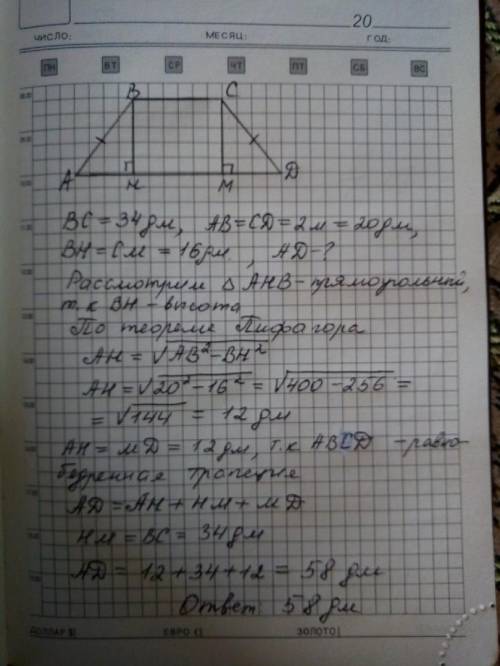 20
ЧИСЛО: МЕСЯЦ: ГОД:
ПН ВТ СР ЧТ ПТ СБ ВС
B C
A H M D
BC = 34 дм, AB = CD = 2 м = 20 дм,
BH = CM = 16 дм, AD - ?
Рассмотрим △ AHB - прямоугольный,
т.к BH - высота
По теореме Пифагора
AH = √AB² - BH²
AH = √20² - 16² = √400 - 256 =
= √144 = 12 дм
AH = MD = 12 дм, т.к ABCD - равно
бедренная трапеция
AD = AH + HM + MD
HM = BC = 34 дм
AD = 12 + 34 + 12 = 58 дм
Ответ: 58 дм
ДОЛЛАР $| ЕВРО €| ЗОЛОТО|